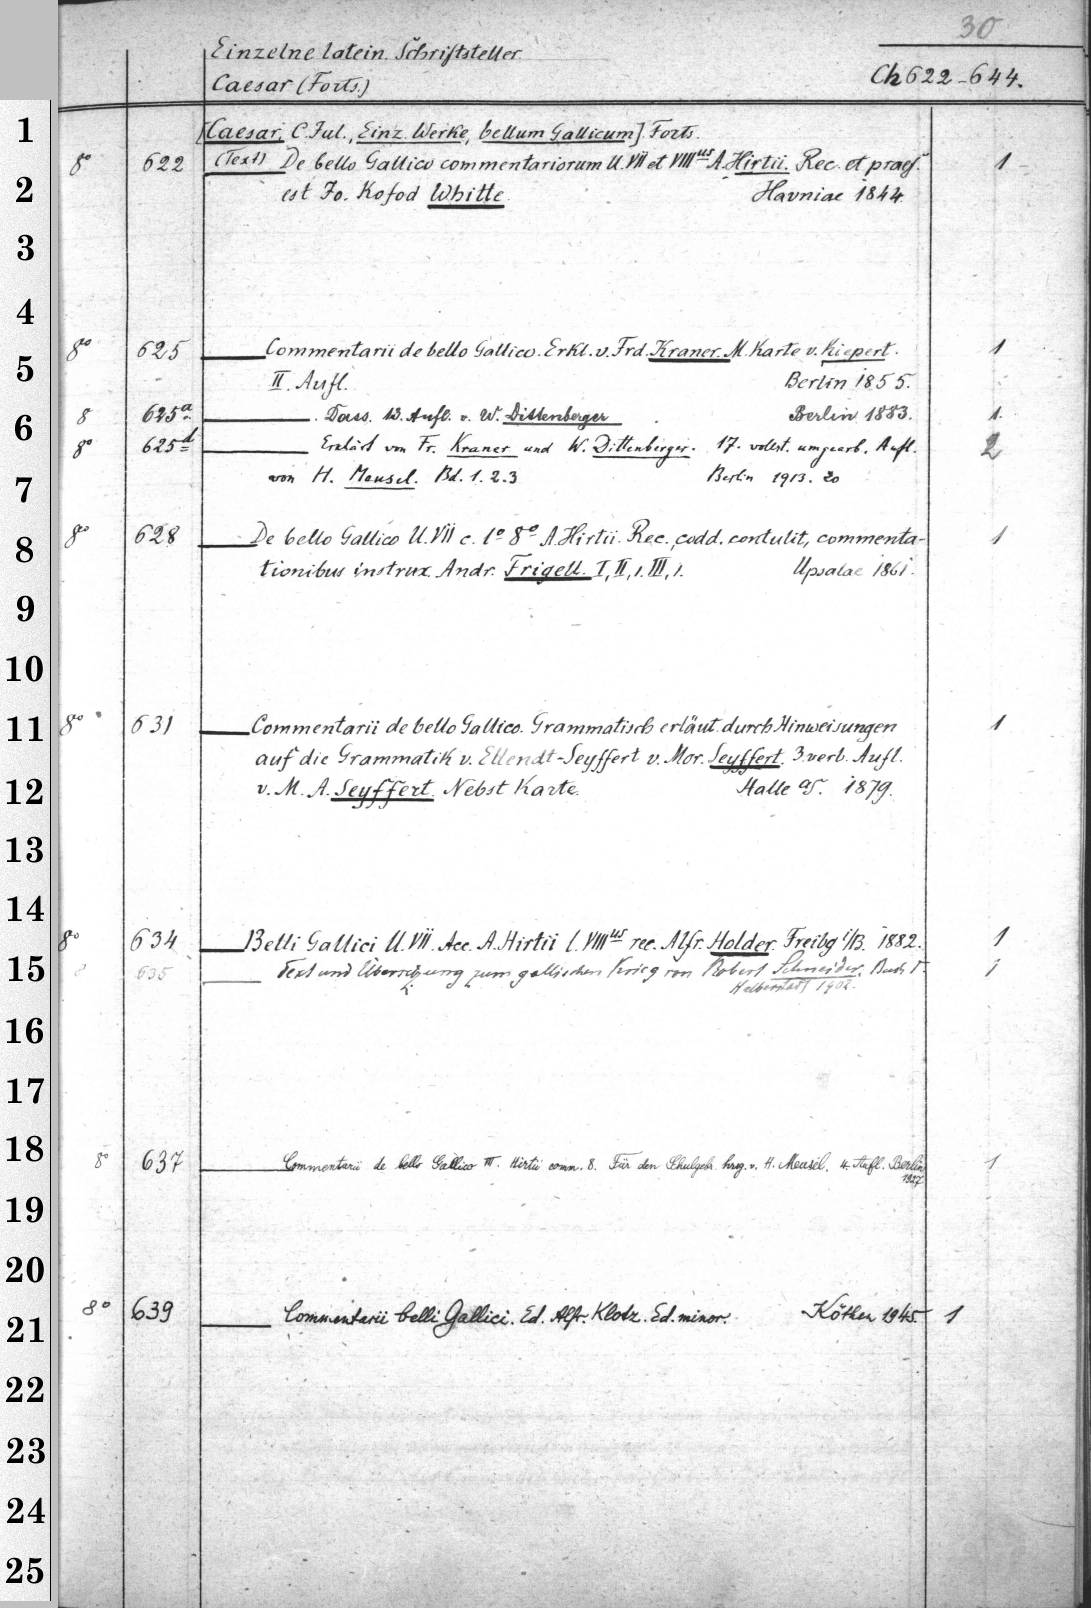 30
Einzelne latein. Schriftsteller.
Caesar (Forts.)
Ch 622-644.
[Caesar, C. Jul., Einz. Werke, bellum Gallicum] Forts.
8° 622 (Text) De bello Gallico commentariorum ll. VII et VIIIus A. Hirtii. Rec. et praef. 1
est Jo. Kofod Whitte. Havniae 1844.
8° 625 Commentarii de bello Gallico. Erkl. v. Frd. Kraner. M. Karte v. Kiepert. 1
II. Aufl. Berlin 1855.
8 625a. Dass. 13. Aufl. v. W. Dittenberger Berlin 1883. 1.
8° 625d Erklärt von Fr. Kraner und W. Dittenberger. 17. vollst. umgearb. Aufl. 2
von H. Meusel. Bd. 1. 2. 3 Berlin 1913. 20
8° 628 De bello Gallico ll. VII c. l° 8° A. Hirtii. Rec., codd. contulit, commenta- 1
tionibus instrux. Andr. Frigell. I, II, 1. III, 1. Upsalae 1861.
8° 631 Commentarii de bello Gallico. Grammatisch erläut. durch Hinweisungen 1
auf die Grammatik v. Ellendt-Seyffert v. Mor. Seyffert. 3. verb. Aufl.
v. M. A. Seyffert. Nebst Karte. Halle a/S. 1879.
8° 634 Belli Gallici ll. VII. Acc. A. Hirtii l. VIIIus rec. Alfr. Holder. Freibg i/B. 1882. 1
8 635 Text und Übersetzung zum gallischen Krieg von Robert Schneider. Buch I. 1
Halberstadt 1902.
8° 637 Commentarii de bello Gallico VII. Hirtii comm. 8. Für den Schulgebr. hrsg. v. H. Meusel. 4. Aufl. Berlin 1
1927
8° 639 Commentarii belli Gallici. Ed. Alfr. Klotz. Ed. minor. Köthen 1945. 1
1
2
3
4
5
6
7
8
9
10
11
12
13
14
15
16
17
18
19
20
21
22
23
24
25